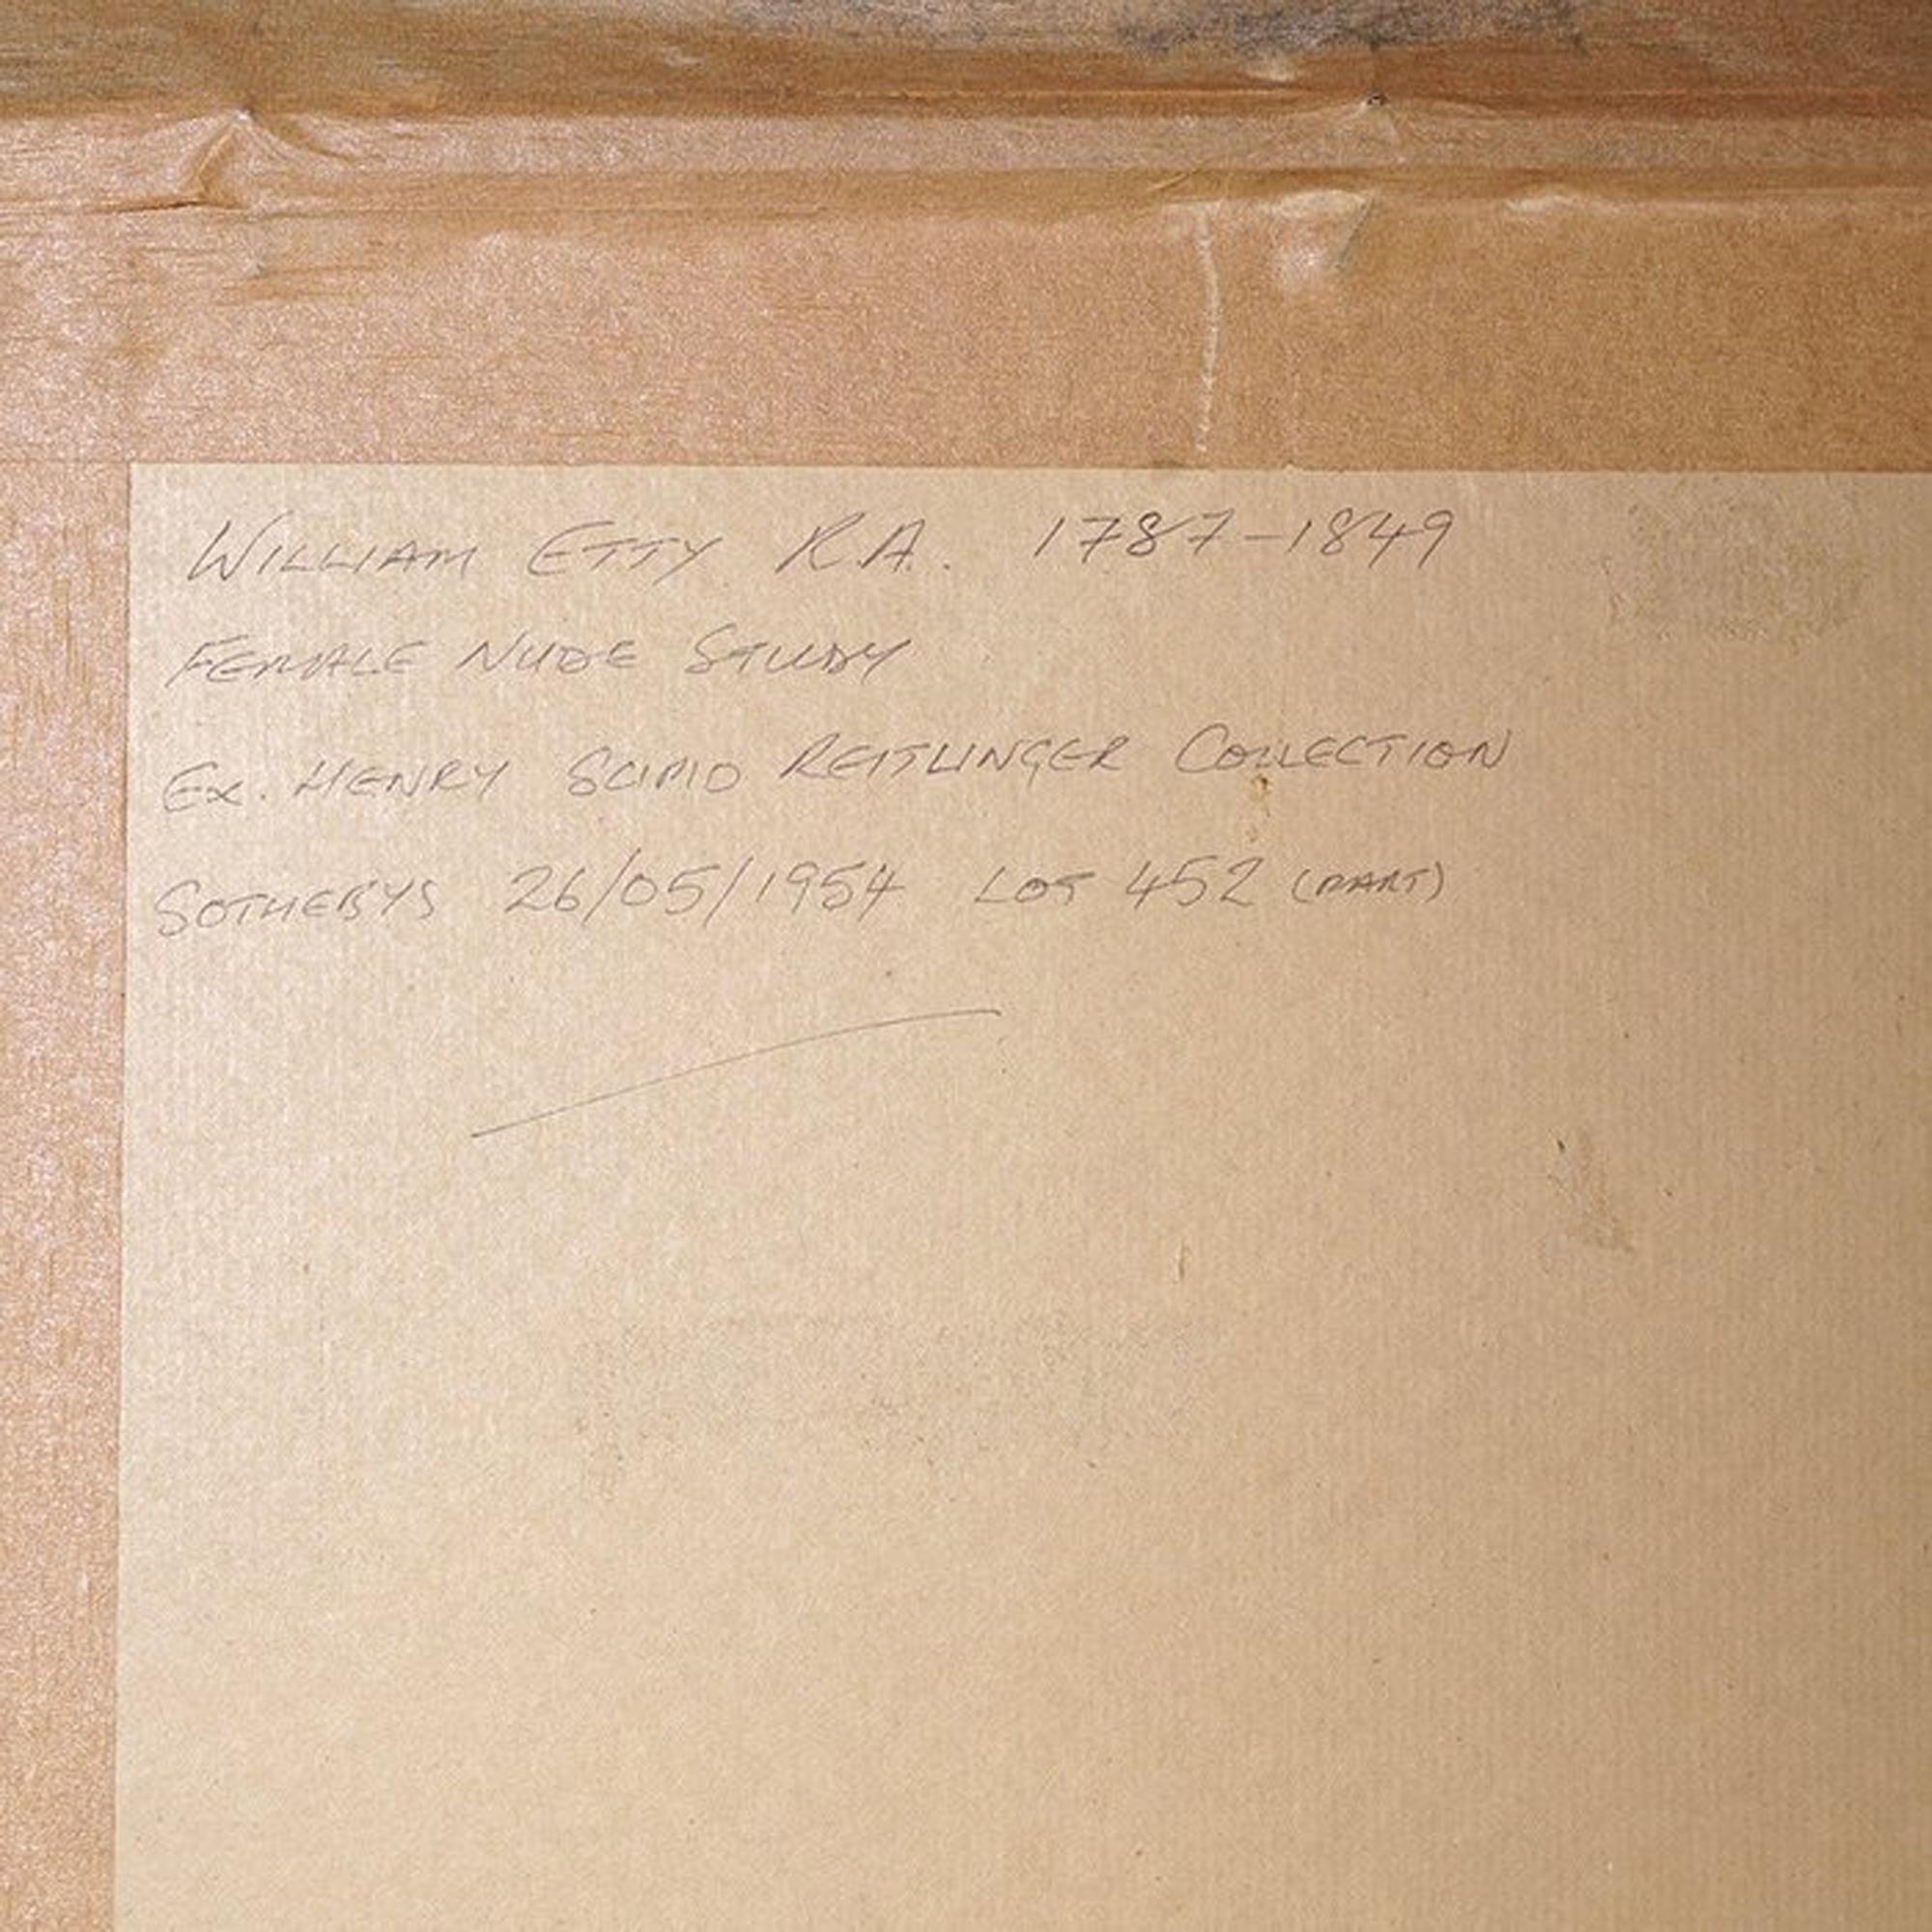 WILLIAM ETTY R.A. 1787-1849
FEMALE NUDE STUDY
EX. HENRY SCIPIO REITLINGER COLLECTION
SOTHEBYS 26/05/1954 LOT 452 (PART)